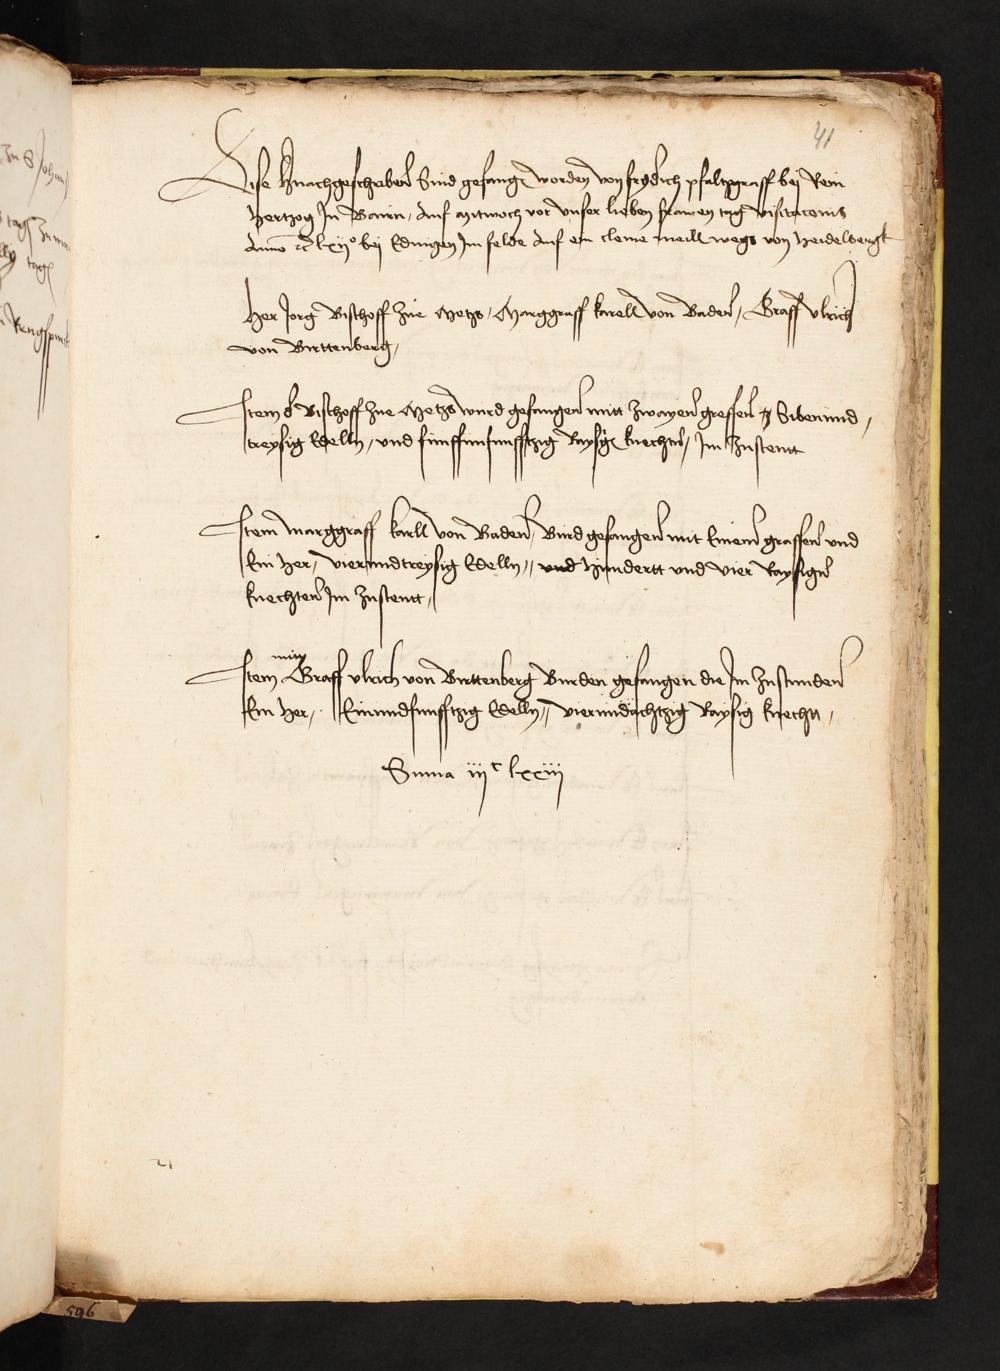 41
Dise hernachgeschriben Sind gefangen worden von frydrich pfaltzgraff bei Rein
Hertzog Jn Bairn, Auf mitwoch vor vnser lieben frawen tag visitacionis
Anno etc lxij° bej Edingen Jm felde Auf ein cleine meill wegs von Heidelbergk
Her Jorg Bischoff zue Metz, Marggraff karell von Baden, Graff vlrich
von Wirttenberg,
Jtem der Bischoff zue Metz wurd gefangen mitt zwayen greffen Sibenund,
treysig Edelln, vnd funffunfunfftzig Raysig knechten, Jm Zustentt
Jtem Marggraff karll von Baden, Wurd gefangen mit Einem graffen vnd
Ein Her, vierundtreysig Edelln, vnd Hundertt vnd vier Raysigen
knechten Jm Zustentt,
Jtem mitt Graff vlrich von Wirttenberg Wurden gefangen die Jm Zustunden
Ein Her, Einundfunfftzig Edelln, vierundachtzig Raysig knecht,
Suma iijc lxxiij
596